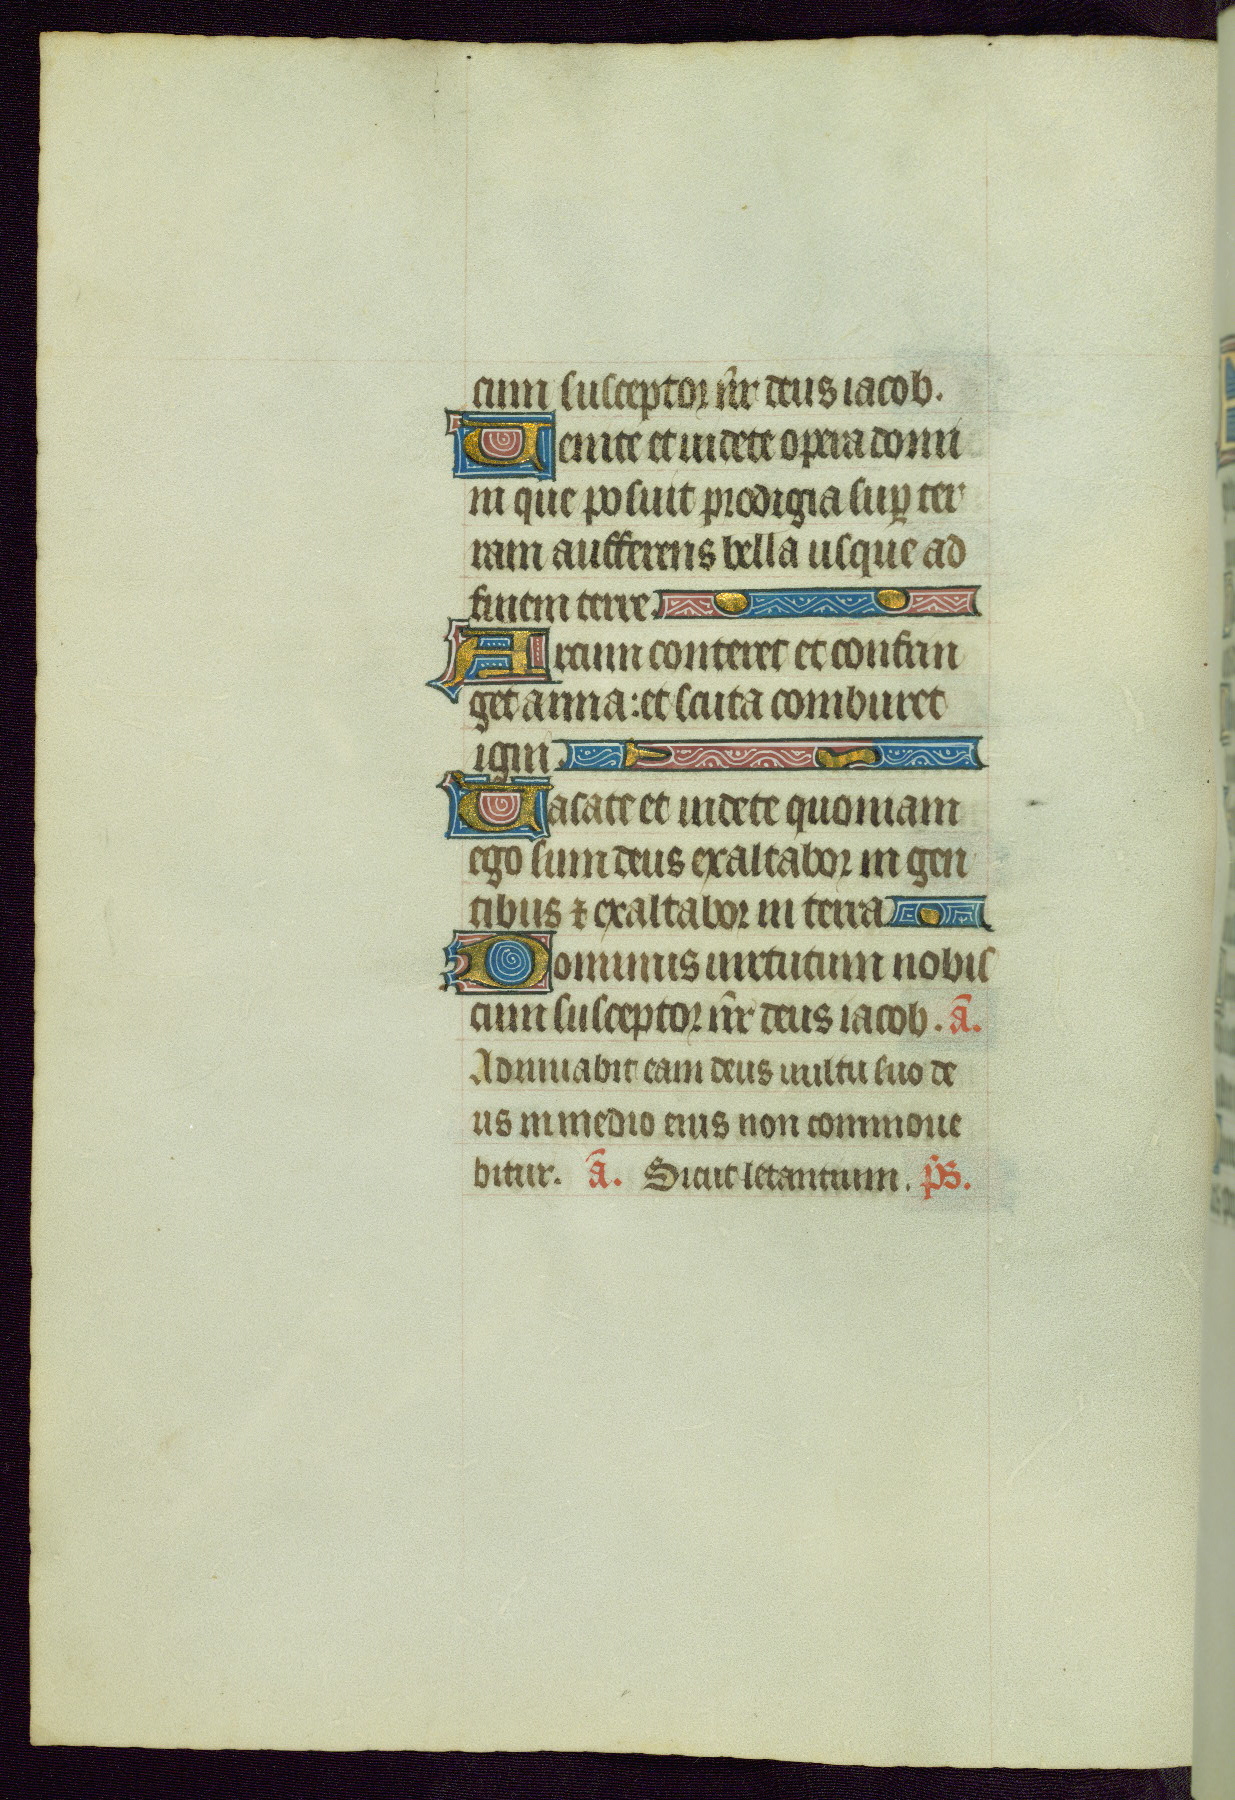 cum susceptor nr̄ deus iacob.
Uenite et uidete opera domi
ni que posuit prodigia sup̱ ter
ram aufferens bella usque ad
finem terre.
Arcum conteret et confrin
get arma: et scuta comburet
igni.
Uacate et uidete quoniam
ego sum deus exaltabor in gen
tibus ⁊ exaltabor in terra
Dominus uirtutum nobis
cum susceptor nr̄ deus iacob. ā.
Adiuuabit eam deus uultu suo de
us in medio eius non commoue
bitur. ā. Sicut letantium. p̄s.